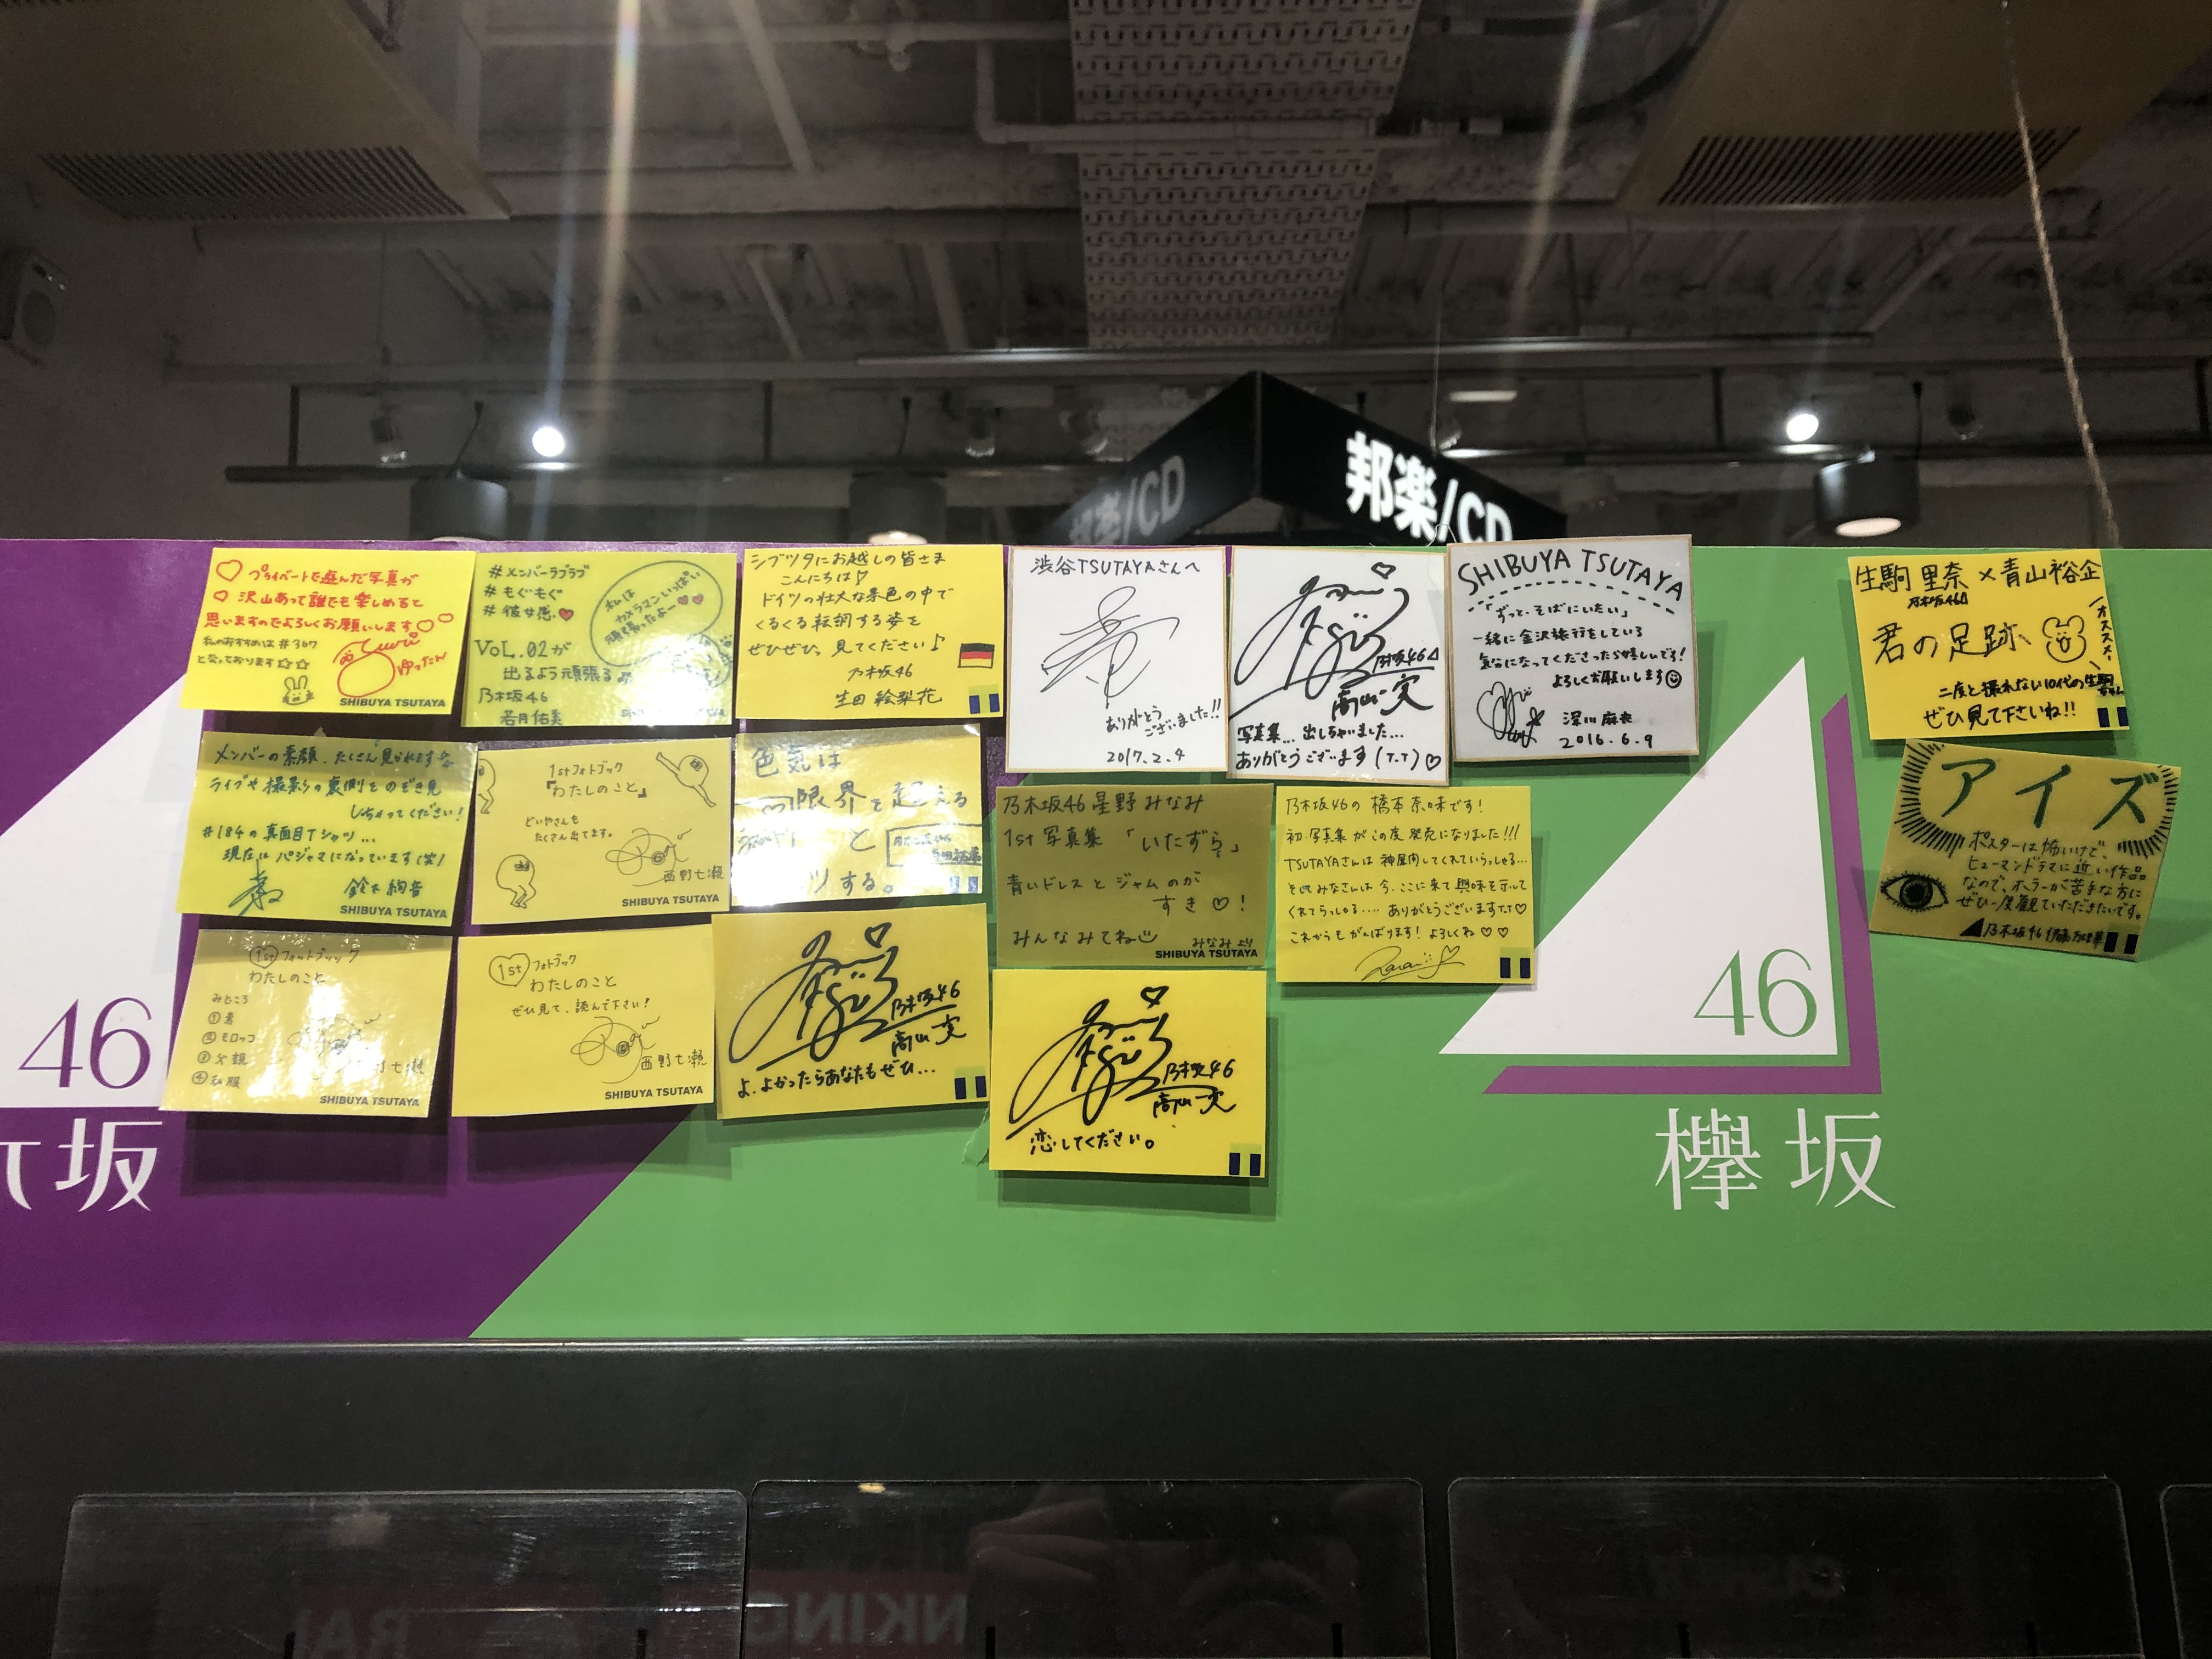 邦楽/CD
邦楽/CD
プライベートで遊んだ写真が
沢山あって誰でも楽しめると
思いますのでよろしくお願いします
私のおすすめは#367
となっております☆☆
ゆったん
SHIBUYA TSUTAYA
#メンバーラブラブ
#もぐもぐ
#彼女感
私は
カメラマンいっぱい
頑張ったよー
VOL.02が
出るよう頑張る
乃木坂46
若月佑美
シブツタにお越しの皆さま
こんにちは♡
ドイツの壮大な景色の中で
くるくる転調する姿を
ぜひぜひっ見てください♪
乃木坂46
生田絵梨花
渋谷TSUTAYAさんへ
ありがとう
ございました!!
2017.2.4
乃木坂46
高山一実
写真集...出しちゃいました...
ありがとうございます(T.T)♡
SHIBUYA TSUTAYA
「ずっと、そばにいたい」
一緒に金沢旅行をしている
気分になってくださったら嬉しいです!
よろしくお願いします
深川麻衣
2016.6.9
生駒里奈×青山裕企
乃木坂46
君の足跡
オススメ
二度と撮れない10代の生駒ちゃん
ぜひ見て下さいね!!
メンバーの素顔、たくさん見られます
ライブや撮影の裏側をのぞき見
しちゃってください!
#184の真面目Tシャツ...
現在はパジャマになっています(笑)
鈴木絢音
SHIBUYA TSUTAYA
1stフォトブック
「わたしのこと」
どいやさんも
たくさん出てます。
西野七瀬
SHIBUYA TSUTAYA
色気は
限界を超える
と
する。
乃木坂46星野みなみ
1st写真集「いたずら」
青いドレスとジャムのが
すき♡!
みんなみてね
みなみより
SHIBUYA TSUTAYA
乃木坂46の橋本奈々未です!
初写真集がこの度発売になりました!!!
TSUTAYAさんは神展開してくれていらっしゃる...
そしてみなさんは今、ここに来て興味を守って
くれてらっしゃる.... ありがとうございますT.T♡
これからもがんばります!よろしくね♡♡
アイズ
ポスターは怖いけど、
ヒューマンドラマに近い作品
なので、ホラーが苦手な方に
ぜひ一度観ていただきたいです。
乃木坂46伊藤万理華
1stフォトブック
わたしのこと
みどころ
①素
②モロッコ
③父親
④私服
SHIBUYA TSUTAYA
1stフォトブック
わたしのこと
ぜひ見て、読んで下さい!
西野七瀬
SHIBUYA TSUTAYA
乃木坂46
高山一実
よ、よかったらあなたもぜひ...
乃木坂46
高山一実
恋してください。
46
坂
46
欅坂